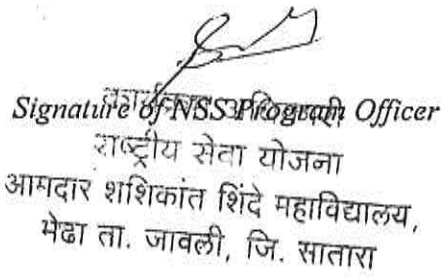 Signature of NSS Program Officer
कार्यक्रम अधिकारी
राष्ट्रीय सेवा योजना
आमदार शशिकांत शिंदे महाविद्यालय,
मेढा ता. जावली, जि. सातारा